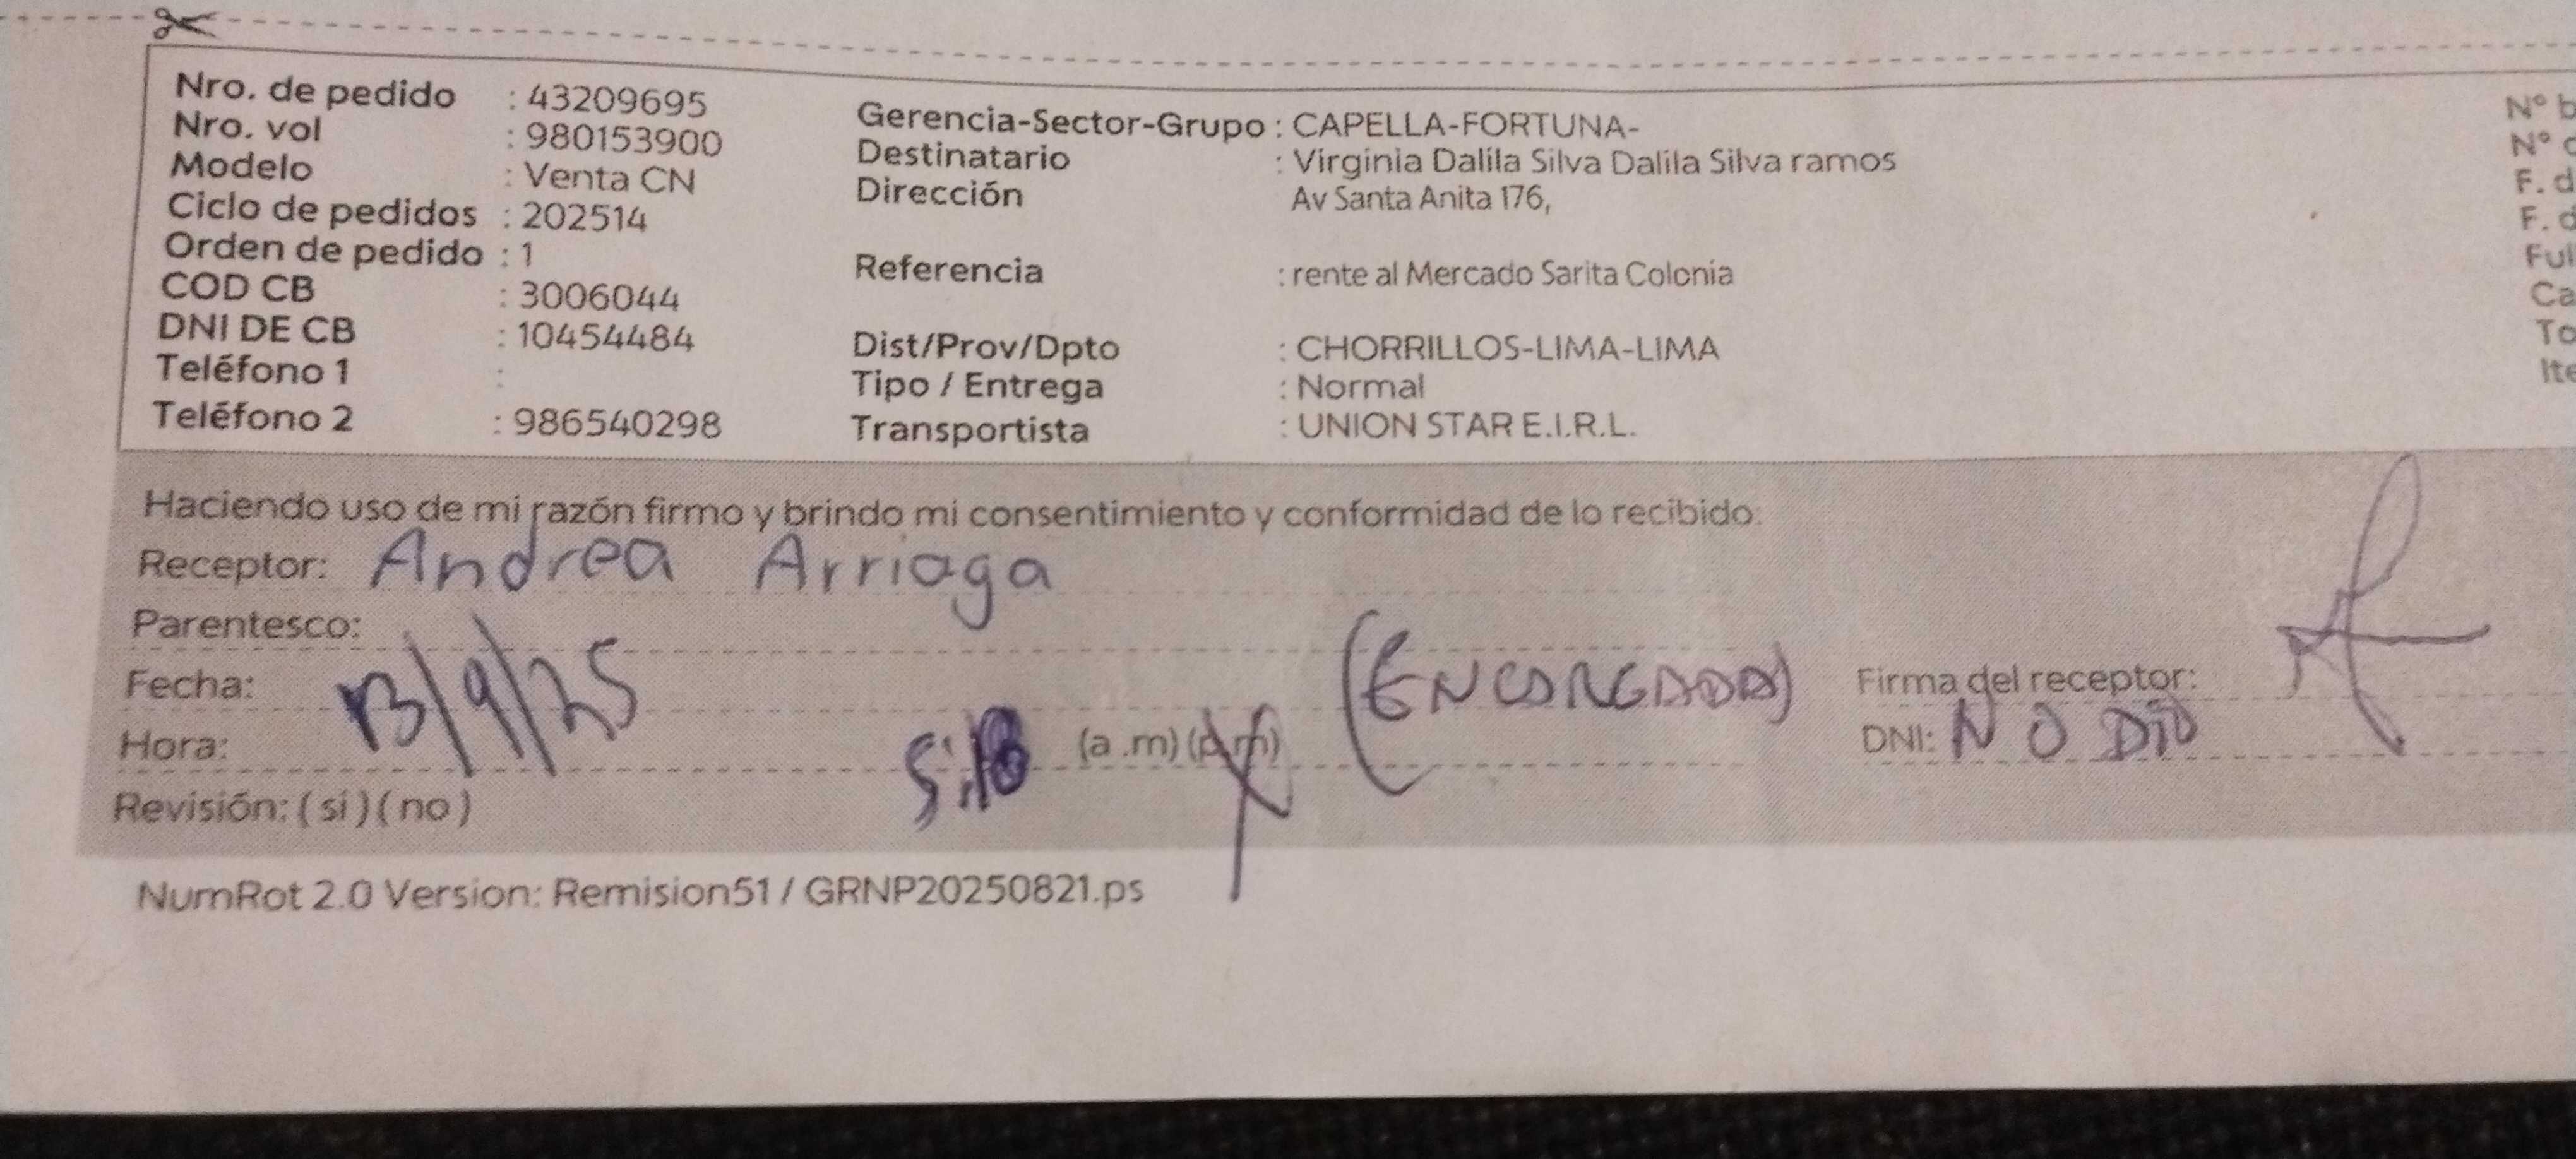 Nro. de pedido : 43209695
Nro. vol : 980153900
Modelo : Venta CN
Ciclo de pedidos : 202514
Orden de pedido : 1
COD CB : 3006044
DNI DE CB : 10454484
Teléfono 1 :
Teléfono 2 : 986540298
Gerencia-Sector-Grupo : CAPELLA-FORTUNA-
Destinatario : Virginia Dalila Silva Dalila Silva ramos
Dirección Av Santa Anita 176,
Referencia : rente al Mercado Sarita Colonia
Dist/Prov/Dpto : CHORRILLOS-LIMA-LIMA
Tipo / Entrega : Normal
Transportista : UNION STAR E.I.R.L.
N° b
N° c
F. d
F. d
Ful
Ca
To
Ite
Haciendo uso de mi razón firmo y brindo mi consentimiento y conformidad de lo recibido.
Receptor: Andrea Arriaga
Parentesco:
Fecha: 13/9/25
(ENCARGADA)
Firma del receptor:
Hora: (a .m) (p.m)
DNI: NO DIO
Revisión: ( si ) ( no )
NumRot 2.0 Version: Remision51 / GRNP20250821.ps